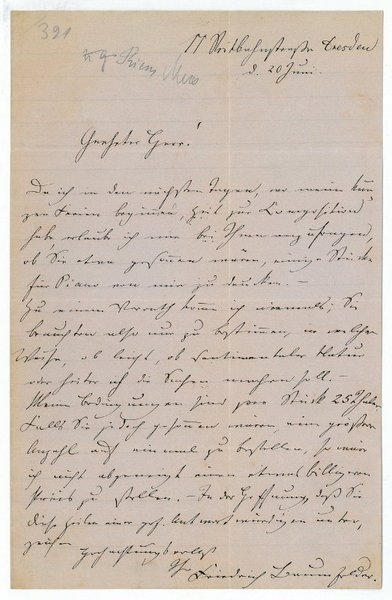 391
17 Reitbahnstraße Dresden
d. 20 Juni.
Geehrter Herr!
Da ich in den nächsten Tagen, wo meine kur-
zen Ferien beginnen, Zeit zur Composition
habe erlaube ich mir bei Ihnen anzufragen,
ob Sie etwa gesonnen wären, einige Stücke
für Piano von mir zu drucken. —
Zu einem Vorrath komme ich niemals; Sie
brauchten also nur zu bestimmen, in welcher
Weise, ob leicht, ob sentimentaler Natur
oder heiter ich die Sachen machen soll. —
Meine Bedingungen sind pro Stück 25 Thaler.
Falls Sie jedoch gesonnen wären, eine größere
Anzahl auf einmal zu bestellen, so wäre
ich nicht abgeneigt einen etwas billigeren
Preis zu stellen. — In der Hoffnung, daß Sie
diese Zeilen einer gef. Antwort würdigen unter-
zeichne
Hochachtungsvollst
Ihr Friedrich Baumfelder.